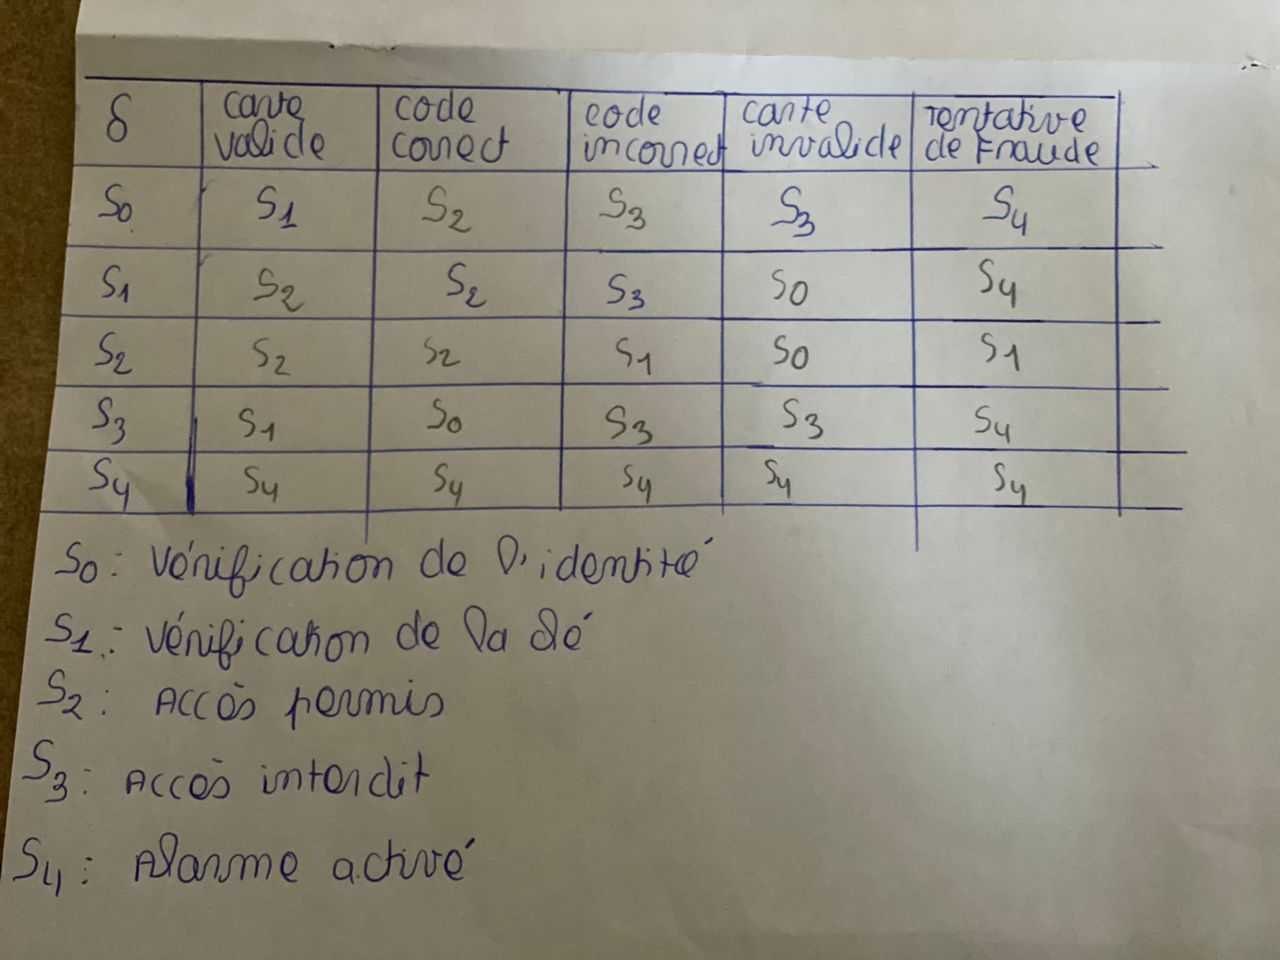 δ carte valide code correct code incorrect carte invalide Tentative de Fraude
S0 S1 S2 S3 S3 S4
S1 S2 S2 S3 S0 S4
S2 S2 S2 S1 S0 S1
S3 S1 S0 S3 S3 S4
S4 S4 S4 S4 S4 S4
S0 : Vérification de l'identité
S1 : Vérification de la clé
S2 : Accès permis
S3 : Accès interdit
S4 : Alarme activé